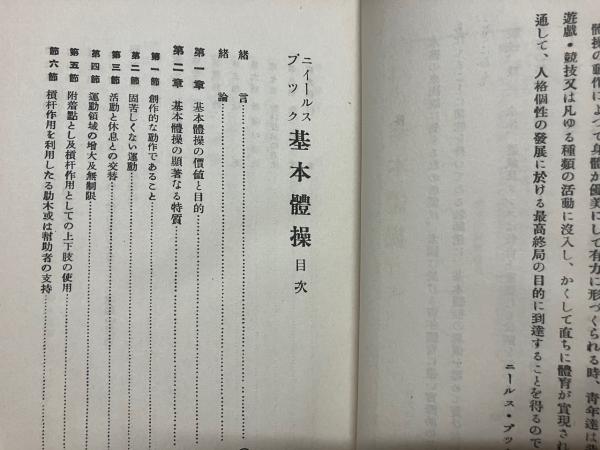 體操の動作によつて身體が優美にして有力に形づくられる時、靑年達は
遊戲・競技又は凡ゆる種類の活動に沒入し、かくして直ちに體育が實現され
通して、人格個性の發展に於ける最高終局の目的に到達することを得るので
ニールス・ブツ
ニイールス
ブツク
基本體操 目次
緖言
緖論
第一章 基本體操の價値と目的
第二章 基本體操の顯著なる特質
第一節 創作的な動作であること
第二節 固苦しくない運動
第三節 活動と休息との交替
第四節 運動領域の增大及無制限
第五節 附着點とし及槓杆作用としての上下肢の使用
第六節 槓杆作用を利用したる肋木或は幇助者の支持